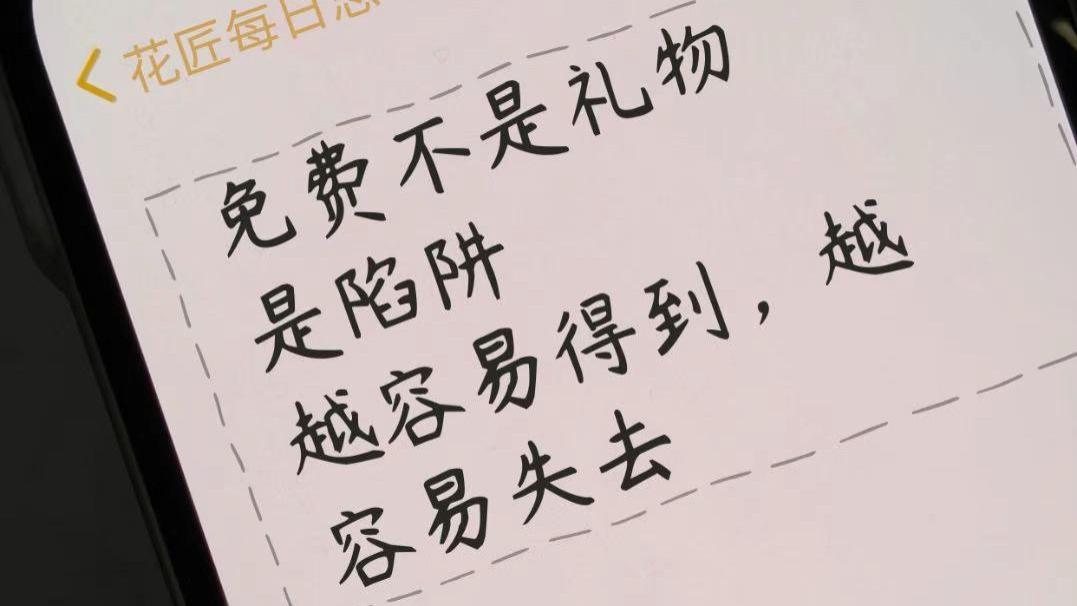 花匠每日
免费不是礼物
是陷阱
越容易得到，越
容易失去